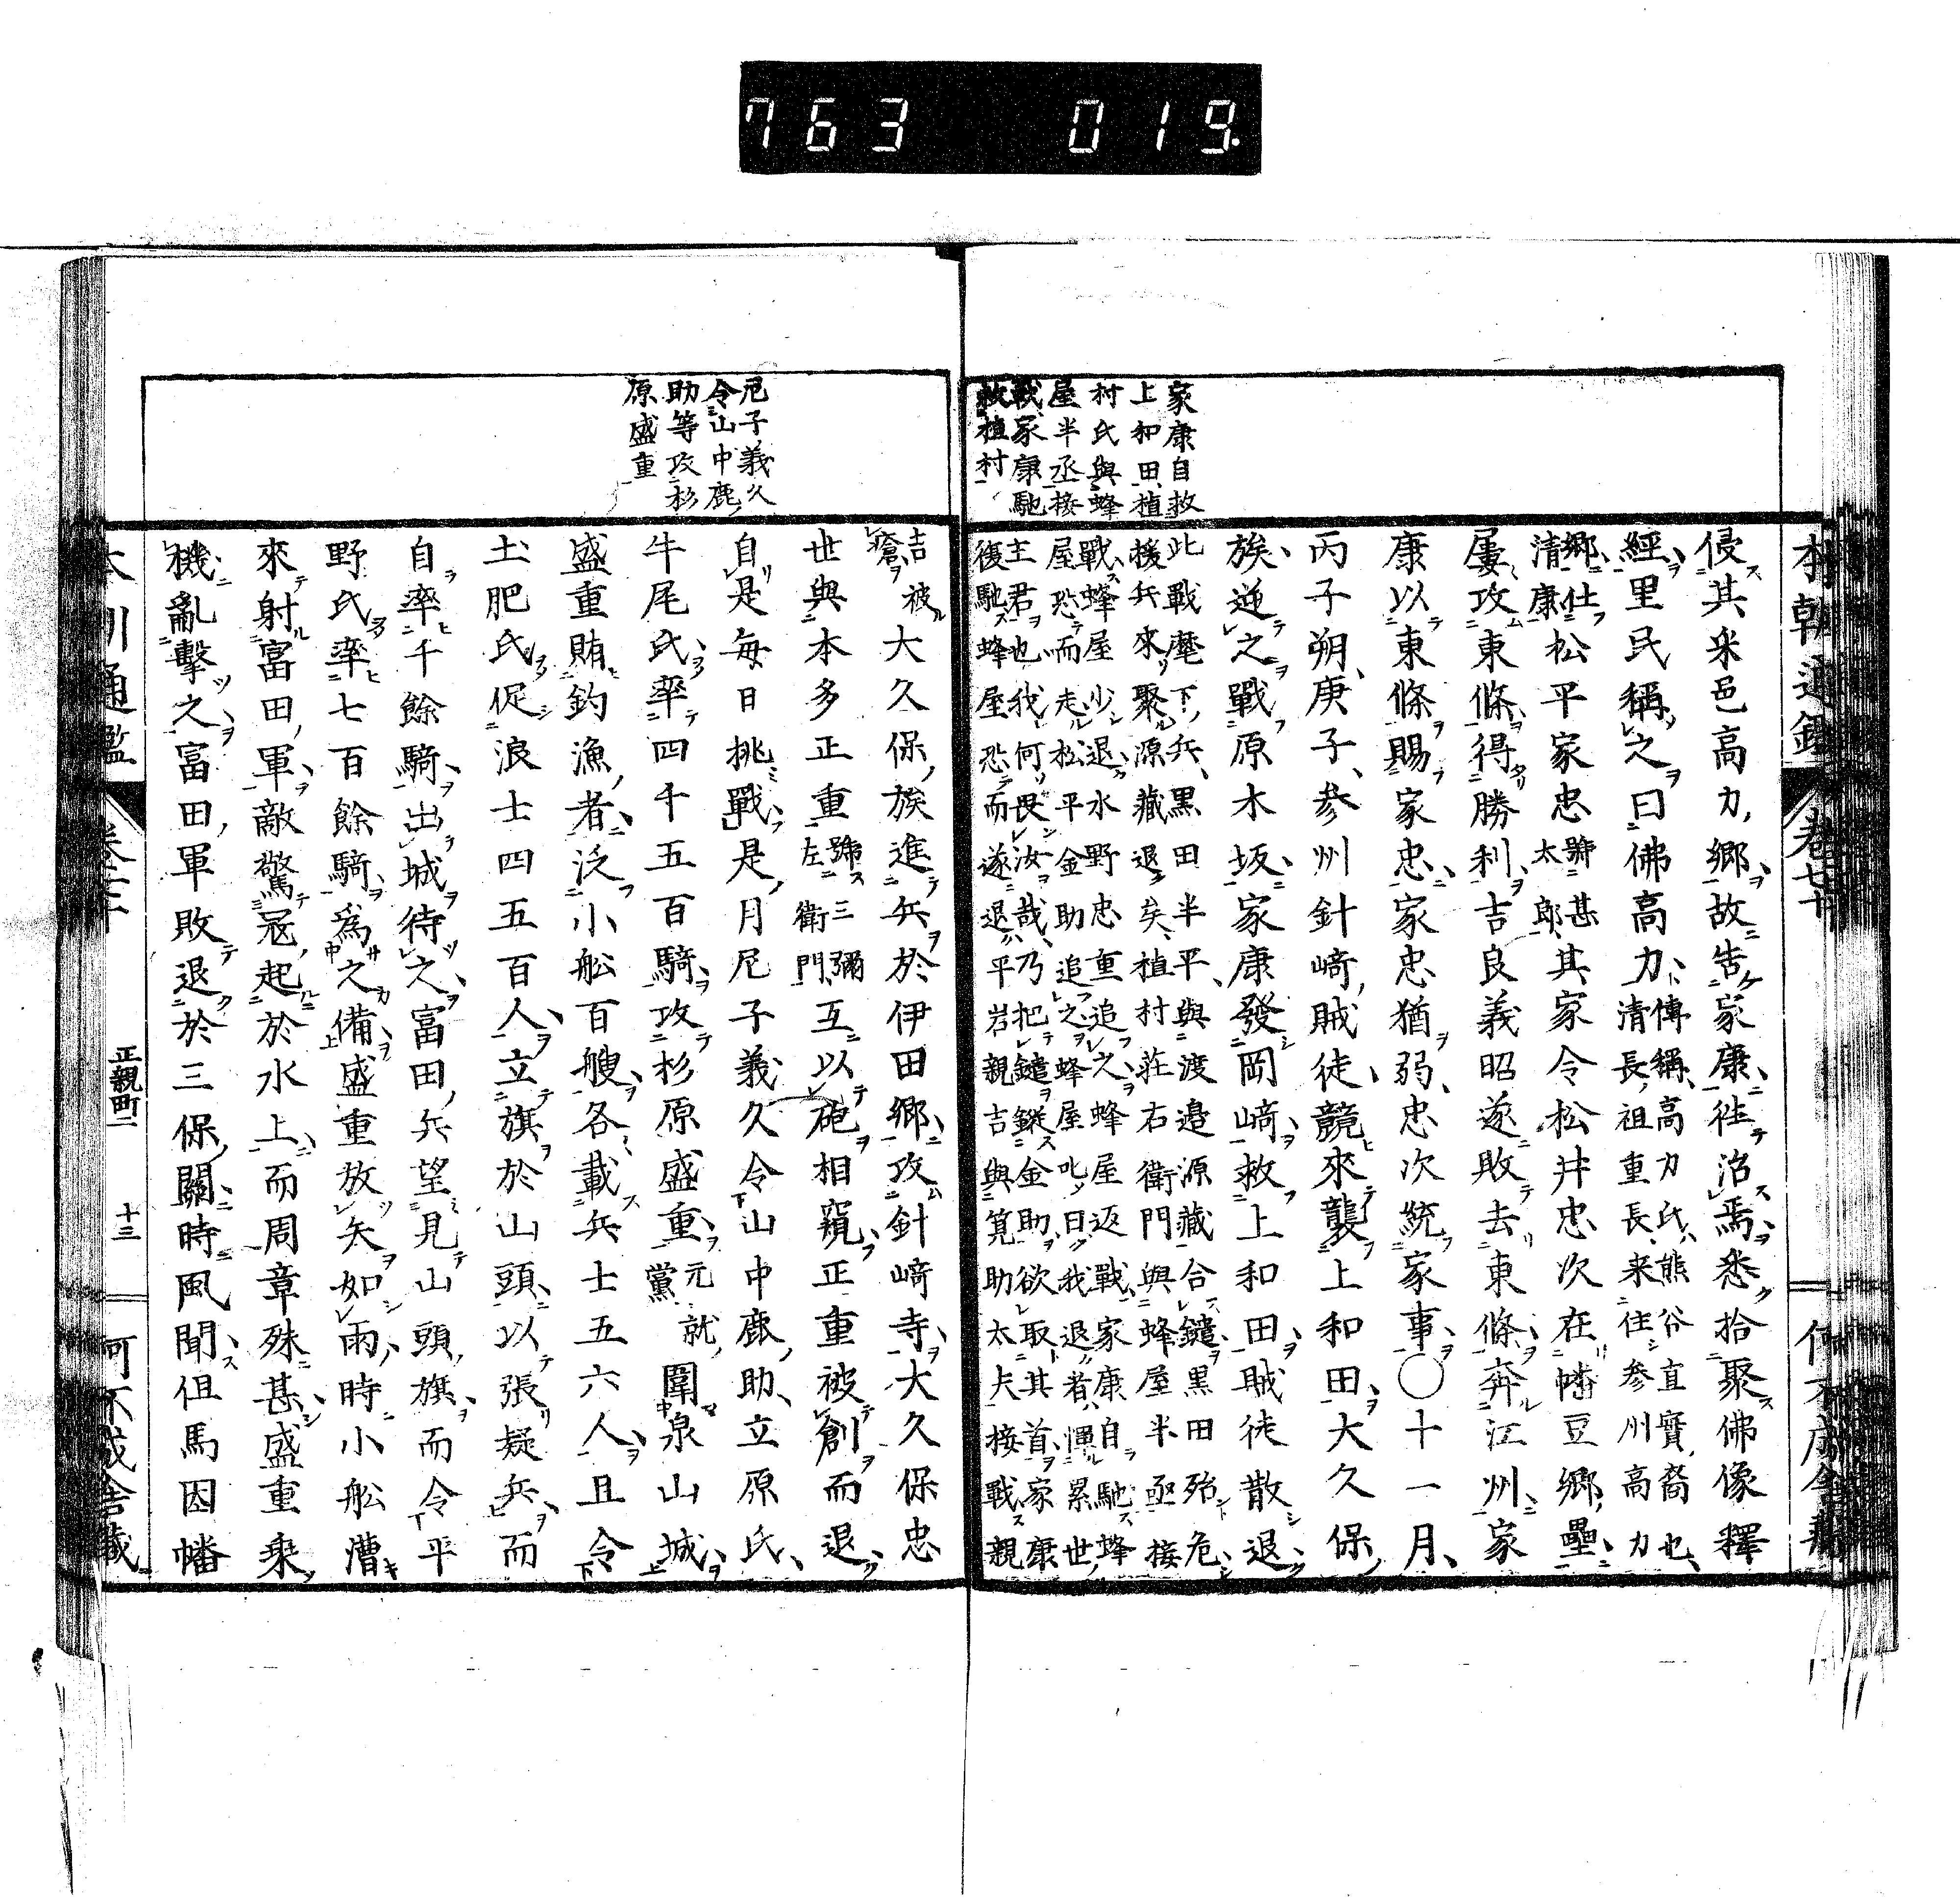 763 019
家康自救
上和田植
村氏與蜂
屋半丞接
戰家康馳
救植村
侵其釆邑高力鄉故告家康往治焉悉拾聚佛像釋
經里民稱之曰佛高力傳稱高力氏熊谷直實裔也
清長祖重長来住參州高力
鄉仕
清康松平家忠號甚
太郎其家令松井忠次在幡豆鄉壘
屢攻東條得勝利吉良義昭遂敗去東條奔江州家
康以東條賜家忠家忠猶弱忠次統家事〇十一月
丙子朔庚子參州針﨑賊徒競來襲上和田大久保
族逆之戰原木坂家康發岡﨑救上和田賊徒散退
此戰麾下兵黑田半平與渡邉源藏合鑓黑田殆危
援兵來聚源藏退矣植村莊右衛門與蜂屋半丞接
戰蜂屋少退水野忠重追之蜂屋返戰家康自馳蜂
屋恐而走松平金助追之蜂屋叱曰我退者憚累世
主君也我何畏汝哉乃把鑓縱金助欲取其首家康
復馳蜂屋恐而遂退平岩親吉與筧助太夫接戰親
尼子義久
令山中鹿
助等攻杉
原盛重
吉被
瘡大久保族進兵於伊田鄉攻針﨑寺大久保忠
世與本多正重號三彌
左衛門互以砲相窺正重被創而退
自是每日挑戰是月尼子義久令山中鹿助立原氏
牛尾氏率四千五百騎攻杉原盛重元就
黨圍泉山城
盛重賄釣漁者泛小舩百艘各載兵士五六人且令
土肥氏促浪士四五百人立旗於山頭以張疑兵而
自率千餘騎出城待之富田兵望見山頭旗而令平
野氏率七百餘騎為之備盛重放矢如雨時小舩漕
來射富田軍敵驚冦起於水上而周章殊甚盛重乘
機亂擊之富田軍敗退於三保關時風聞伹馬因幡
本朝通鑑 卷七十 正親町二 十三